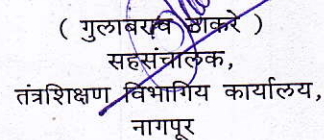 ( गुलाबराव ठाकरे )
सहसंचालक,
तंत्रशिक्षण विभागिय कार्यालय,
नागपूर